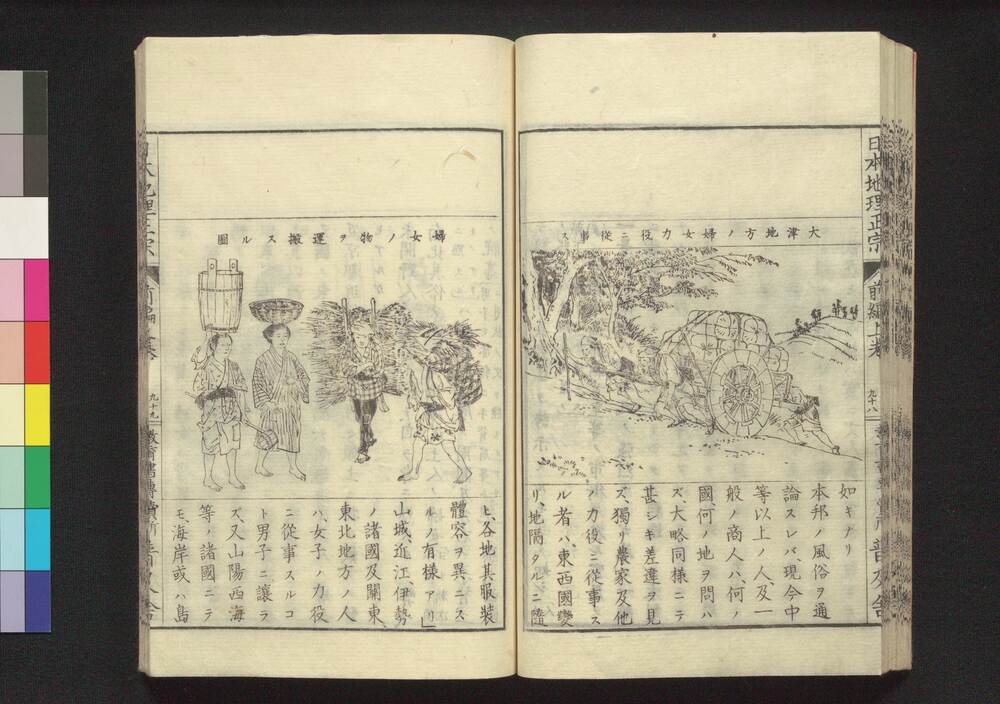 日本地理正宗
前編上巻
九十八
普及舎
大津地方ノ婦女力役ニ從事ス
如キナリ
本邦ノ風俗ヲ通
論スレバ、現今中
等以上ノ人、及一
般ノ商人ハ、何ノ
國、何ノ地ヲ問ハ
ズ、大略同様ニテ
甚シキ差違ヲ見
ズ、獨リ農家及他
ノ力役ニ從事ス
ル者ハ、東西國變
リ、地隔タルニ隨
婦女ノ物ヲ運搬スル圖
ヒ、各地其服装
體容ヲ異ニス
ルノ有様アリ」
山城、近江、伊勢
ノ諸國及關東、
東北地方ノ人
ハ、女子ノ力役
ニ從事スルコ
ト男子ニ讓ラ
ズ、又山陽西海
等ノ諸國ニテ
モ、海岸或ハ島
九十九